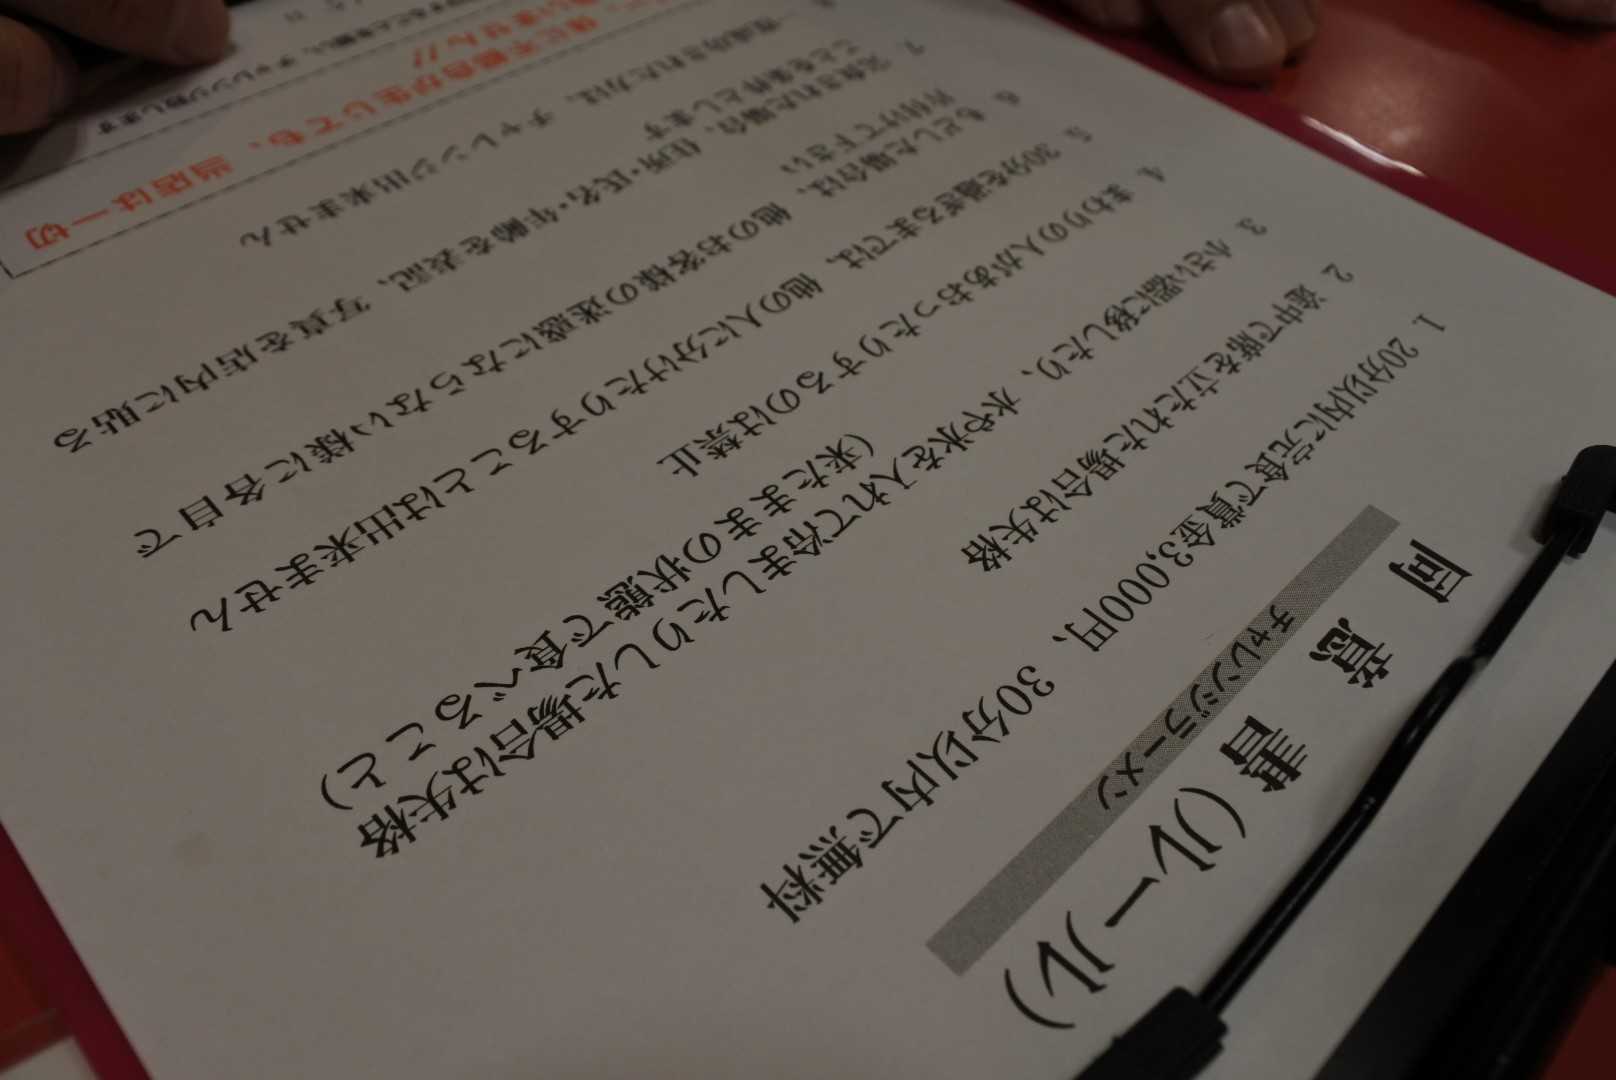 同意書(ルール)
チャレンジラーメン
1. 20分以内に完食で賞金3,000円、30分以内で無料
2. 途中で席を立たれた場合は失格
3. 小さい器に移したり、水や氷を入れて冷ましたりした場合は失格
(来たままの状態で食べること)
4. まわりの人があおったりするのは禁止
5. 30分を過ぎるまでは、他の人に分けたりすることは出来ません
6. もどした場合は、他のお客様の迷惑にならない様に各自で
片付けて下さい
7. 完食された場合、住所・氏名・年齢を表記、写真を店内に貼る
ことを条件とします
8. 一度成功された方は、チャレンジ出来ません
体に不都合が生じても、当店は一切
いません!!
チャレンジ致します